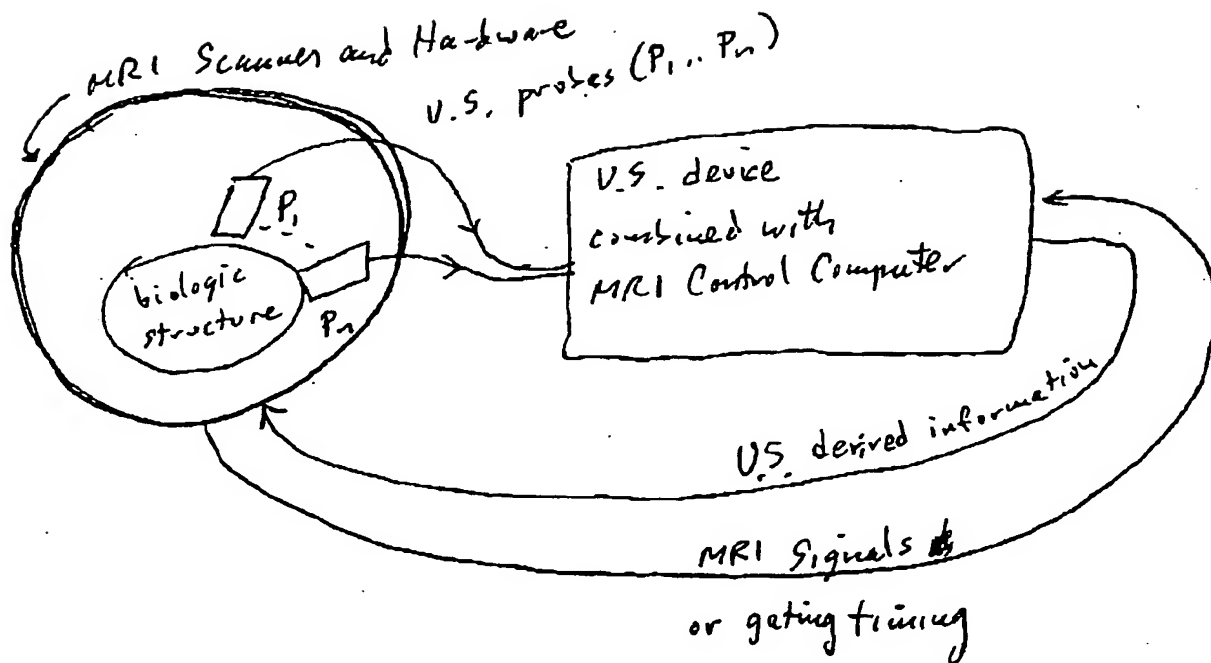 MRI Scanner and Hardware
U.S. probes (P1 .. Pn)
P1
biologic
structure
Pn
U.S. device
combined with
MRI Control Computer
U.S. derived information
MRI Signals
or gating timing